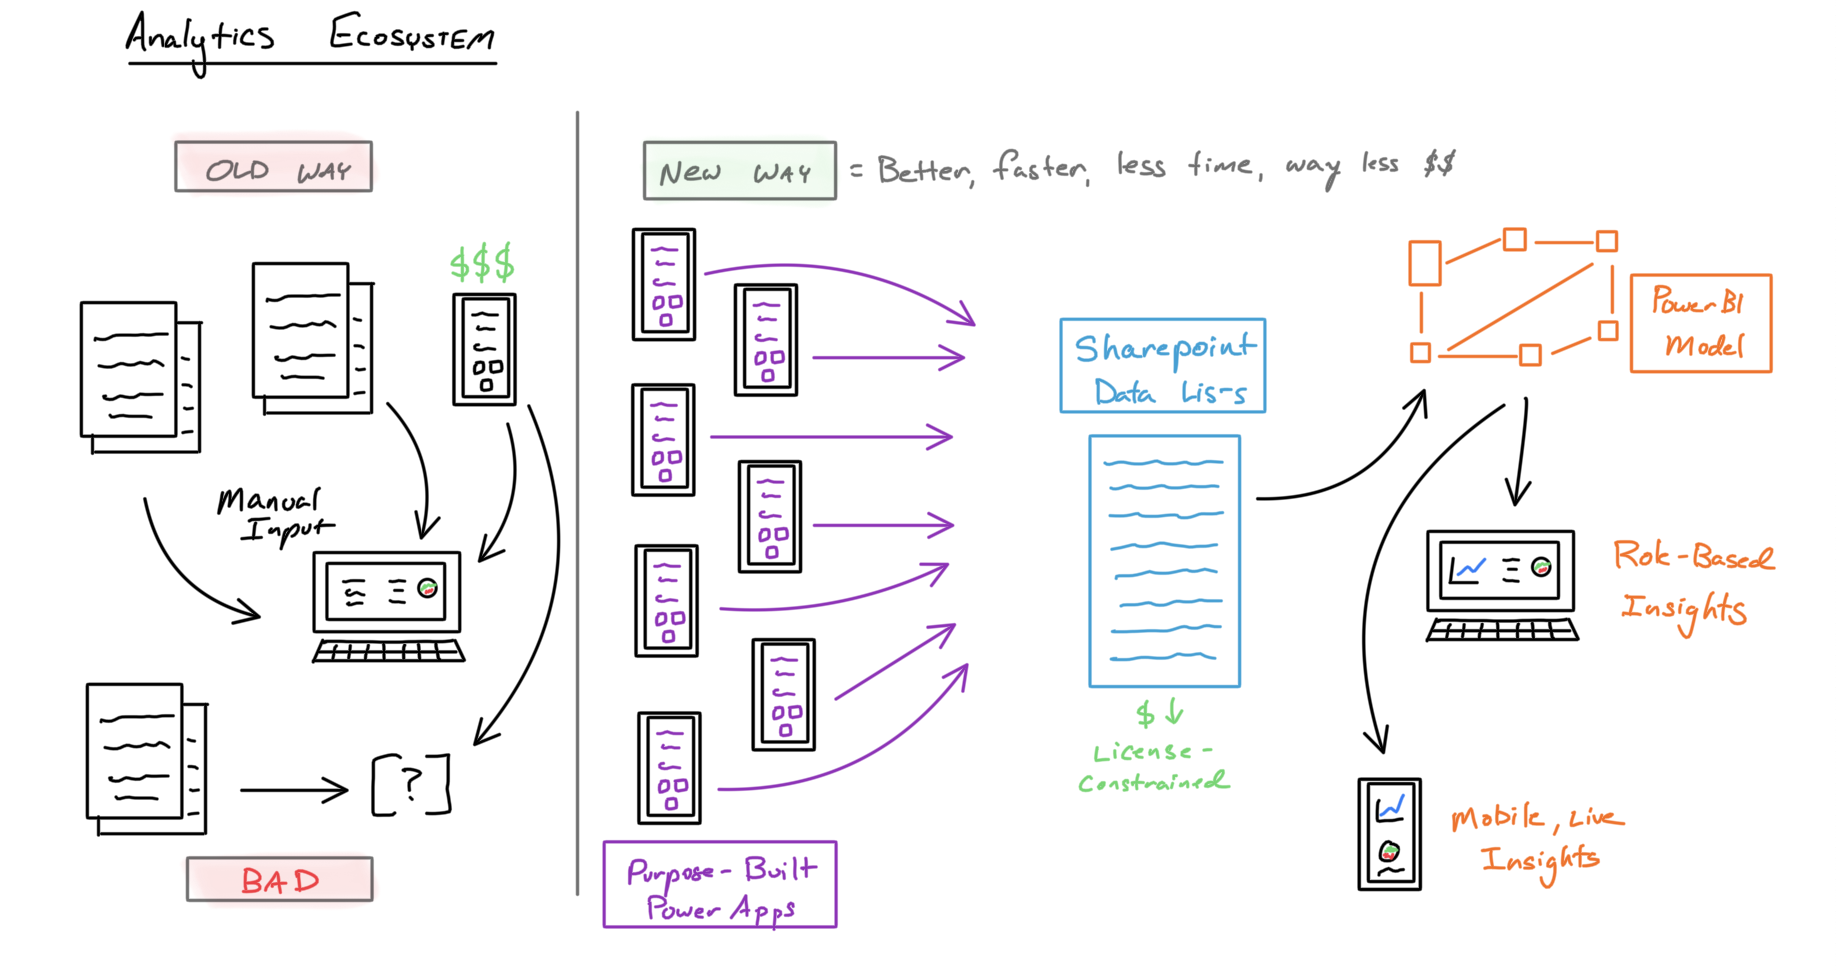 Analytics Ecosystem
OLD WAY
$$$
Manual
Input
[?]
BAD
New Way = Better, faster, less time, way less $$
Purpose-Built
Power Apps
Sharepoint
Data Lists
$ ↓
License-
Constrained
Power BI
Model
Role-Based
Insights
Mobile, Live
Insights